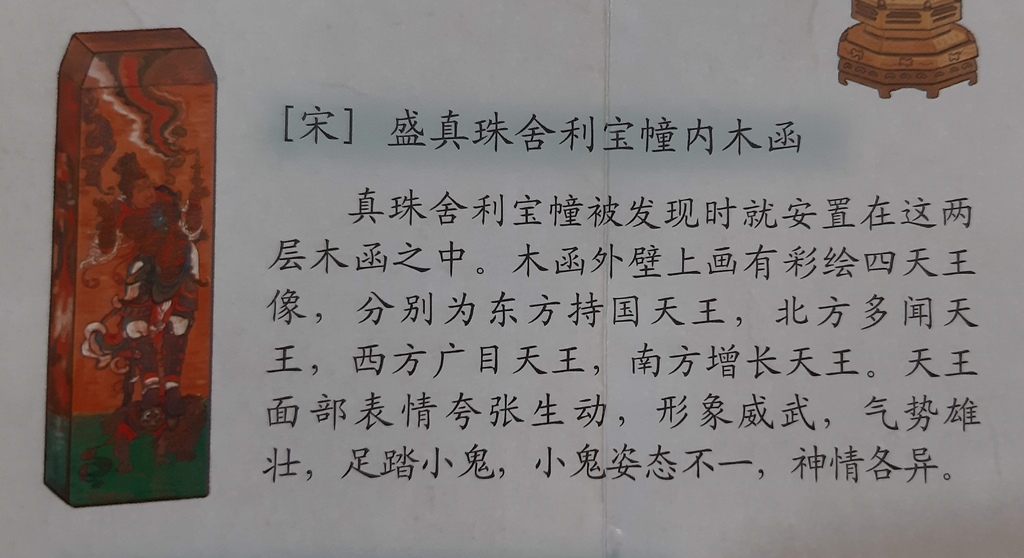 [宋] 盛真珠舍利宝幢内木函
真珠舍利宝幢被发现时就安置在这两
层木函之中。木函外壁上画有彩绘四天王
像，分别为东方持国天王，北方多闻天
王，西方广目天王，南方增长天王。天王
面部表情夸张生动，形象威武，气势雄
壮，足踏小鬼，小鬼姿态不一，神情各异。